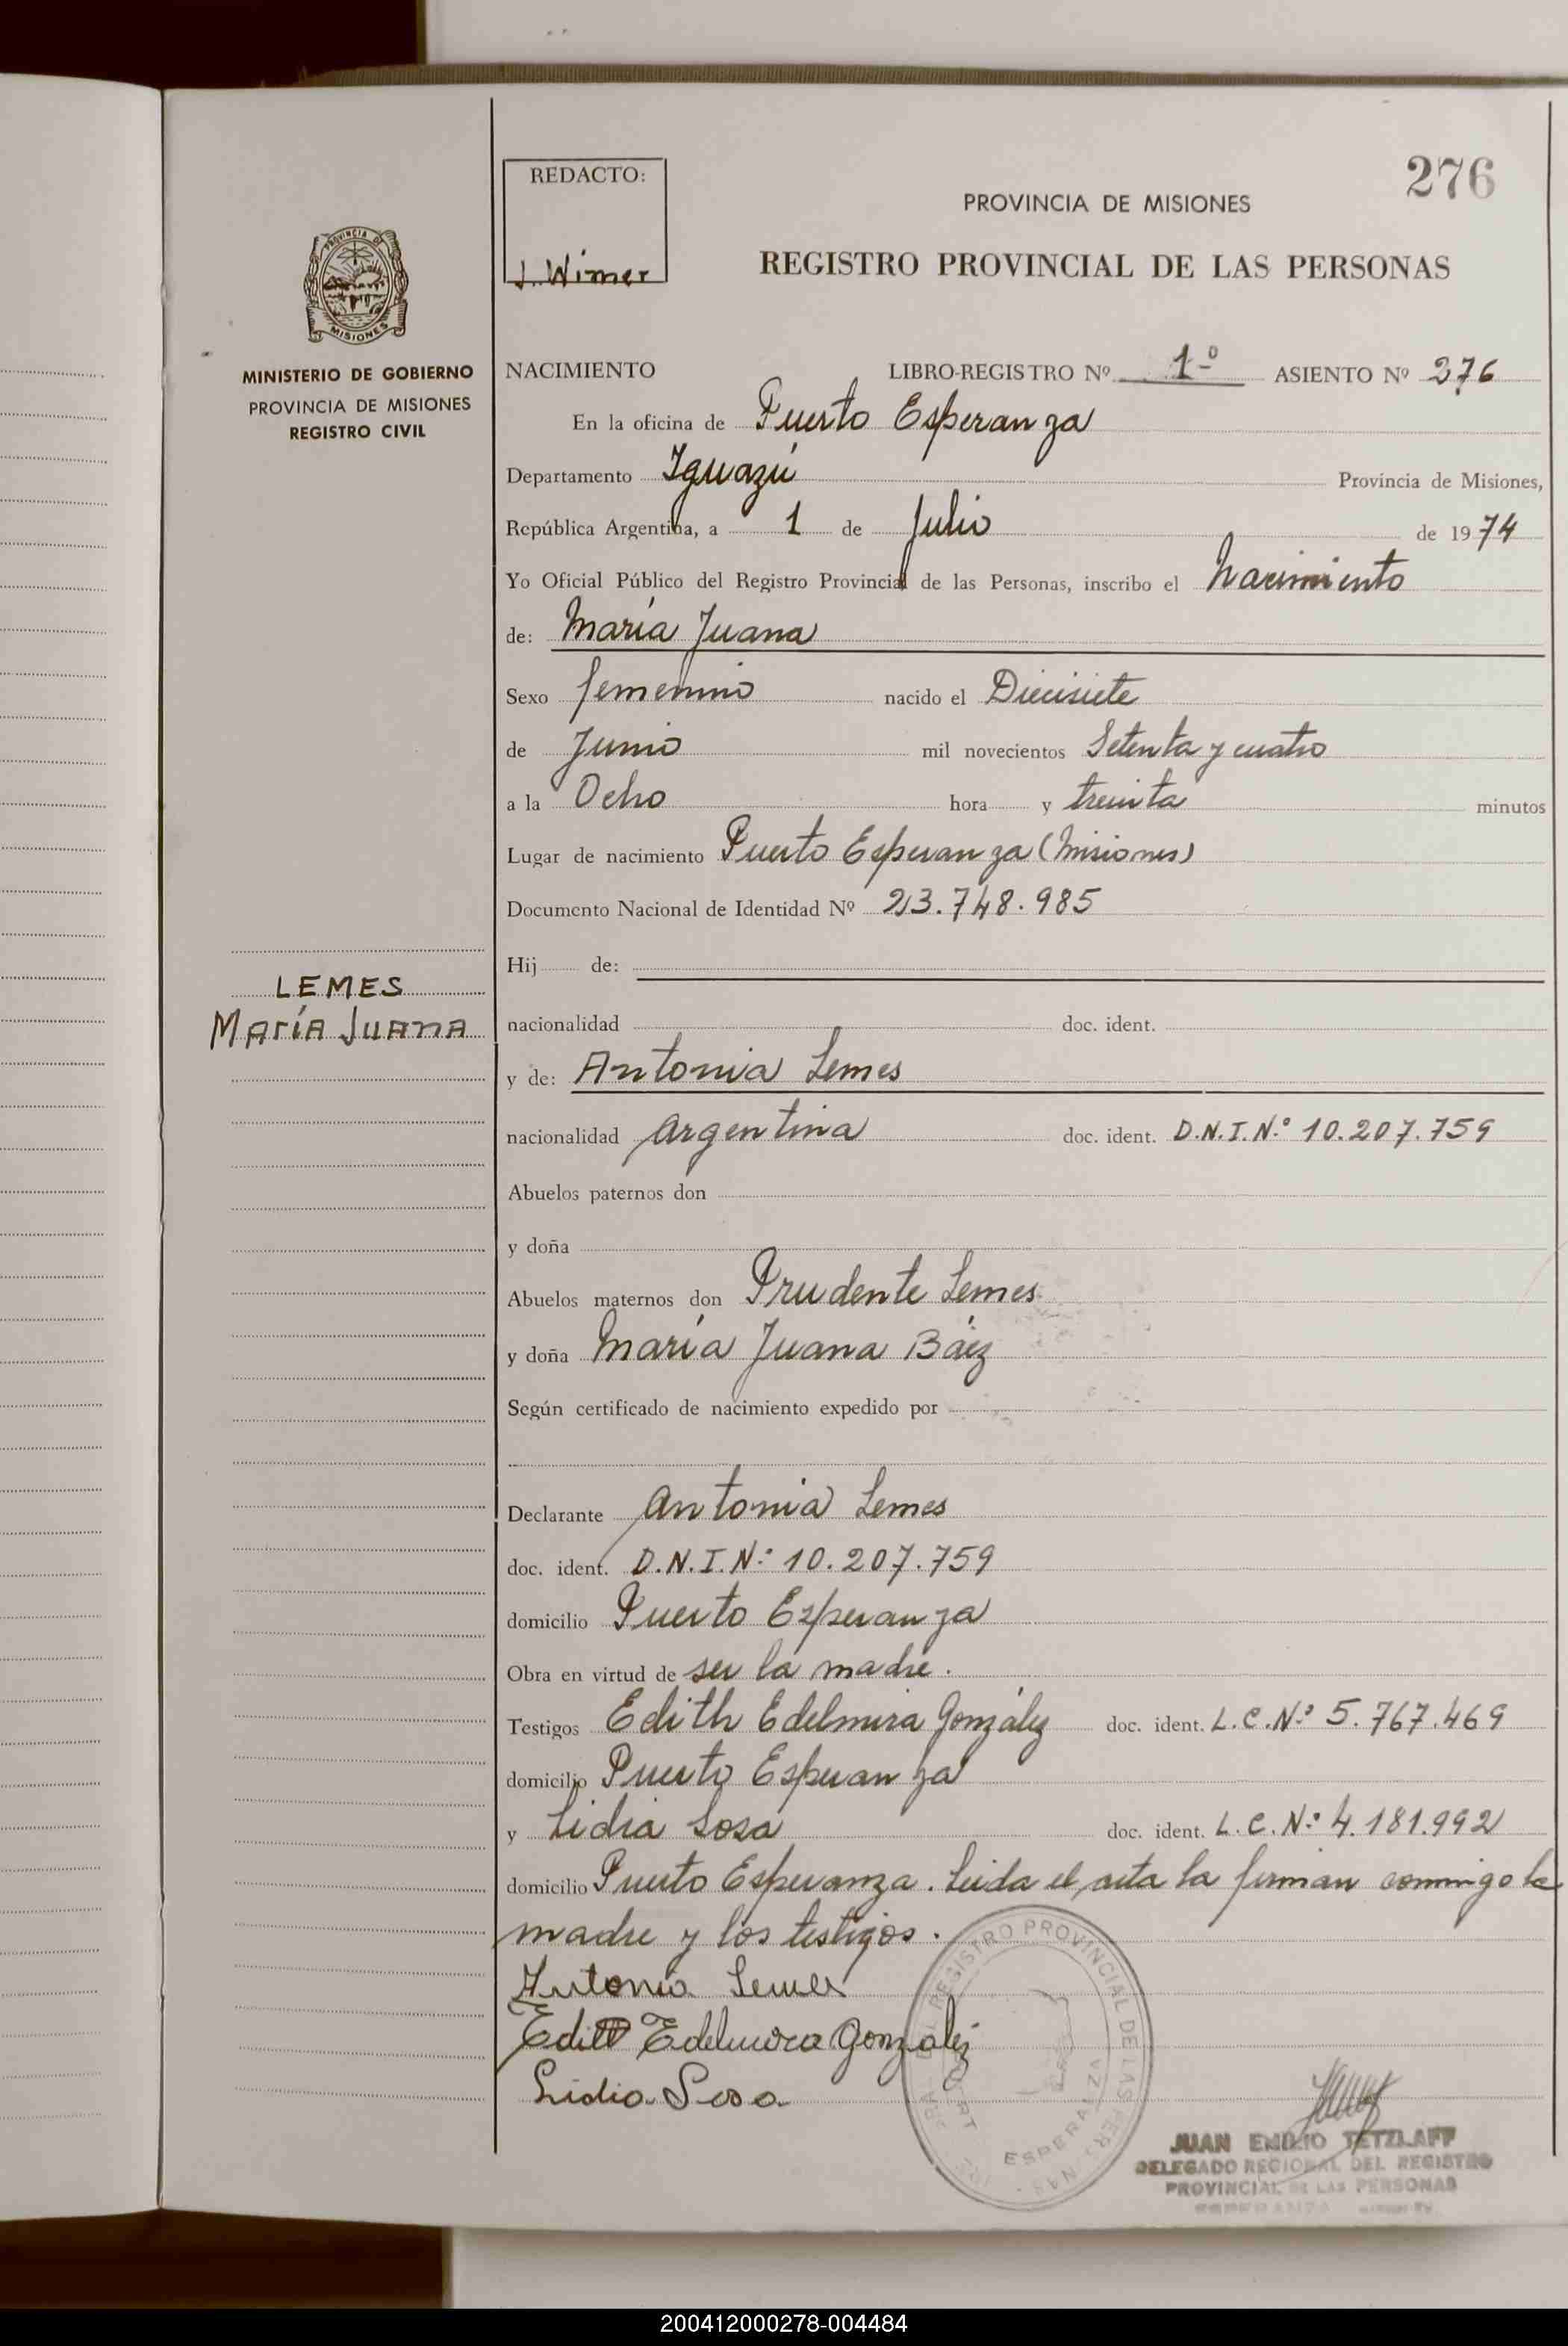 276
REDACTO:
J. Wimer
PROVINCIA DE MISIONES
REGISTRO PROVINCIAL DE LAS PERSONAS
PROVINCIA DE
MISIONES
MINISTERIO DE GOBIERNO
PROVINCIA DE MISIONES
REGISTRO CIVIL
NACIMIENTO LIBRO-REGISTRO Nº 1º ASIENTO Nº 276
En la oficina de Puerto Esperanza
Departamento Iguazú Provincia de Misiones,
República Argentina, a 1 de Julio de 1974
Yo Oficial Público del Registro Provincial de las Personas, inscribo el Nacimiento
de: María Juana
Sexo femenino nacido el Diecisiete
de Junio mil novecientos Setenta y cuatro
a la Ocho hora y treinta minutos
Lugar de nacimiento Puerto Esperanza (Misiones)
Documento Nacional de Identidad Nº 23.748.985
Hij de:
LEMES
María Juana
nacionalidad doc. ident.
y de: Antonia Lemes
nacionalidad argentina doc. ident. D.N.I.Nº 10.207.759
Abuelos paternos don
y doña
Abuelos maternos don Prudente Lemes
y doña María Juana Báez
Según certificado de nacimiento expedido por
Declarante Antonia Lemes
doc. ident. D.N.I.Nº 10.207.759
domicilio Puerto Esperanza
Obra en virtud de ser la madre.
Testigos Edith Edelmira González doc. ident. L.C.Nº 5.767.469
domicilio Puerto Esperanza
y Lidia Sosa doc. ident. L.C.Nº 4.181.992
domicilio Puerto Esperanza. Leida el acta la firman conmigo la
madre y los testigos.
Antonia Lemes
Edith Edelmira Gonzalez
Lidia Sosa
REGISTRO PROVINCIAL DE LAS PERSONAS
ESPERANZA
JUAN EMILIO TETZLAFF
DELEGADO REGIONAL DEL REGISTRO
PROVINCIAL DE LAS PERSONAS
200412000278-004484